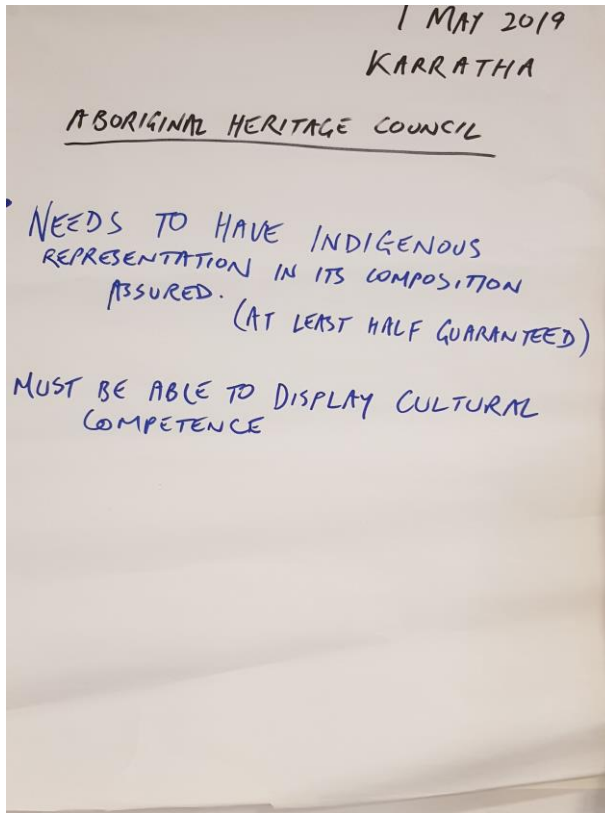 1 MAY 2019
KARRATHA
ABORIGINAL HERITAGE COUNCIL
• NEEDS TO HAVE INDIGENOUS
REPRESENTATION IN ITS COMPOSITION
ASSURED.
(AT LEAST HALF GUARANTEED)
MUST BE ABLE TO DISPLAY CULTURAL
COMPETENCE